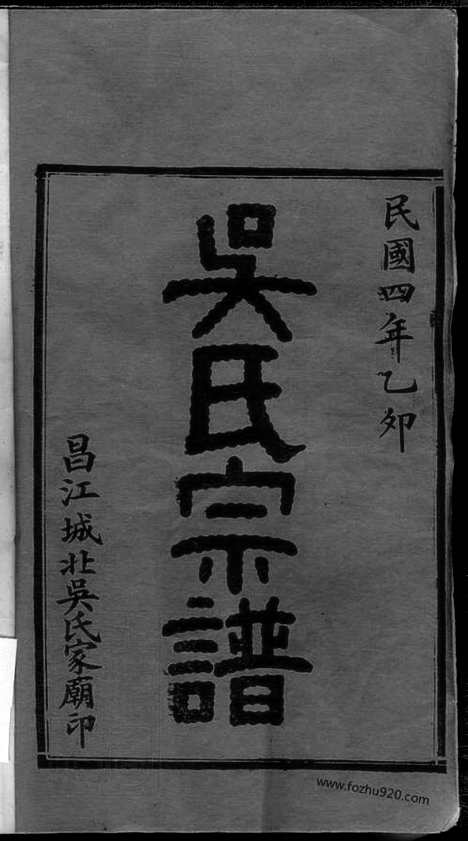 民國四年乙卯
吳氏宗譜
昌江城北吳氏家廟印
www.fozhu920.com